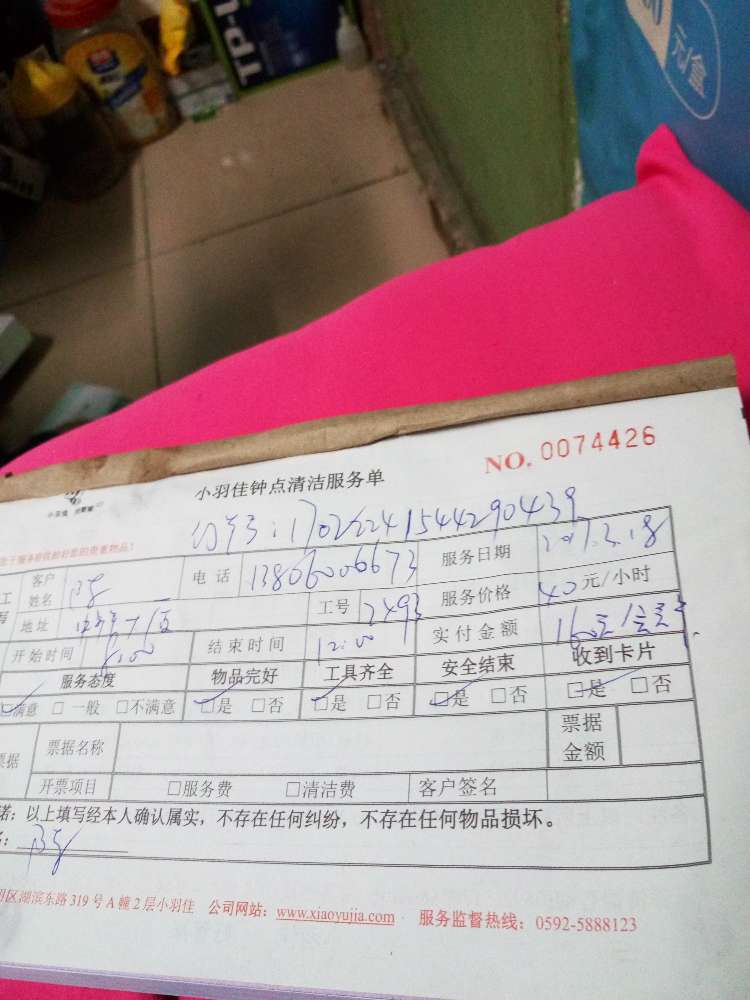 元/盒
TP-L
NO. 0074426
小羽佳钟点清洁服务单
订单号:170222415442904​39
客户姓名 电话 13806006673 服务日期 2017.3.18
地址 工号 2493 服务价格 40元/小时
开始时间 8:00 结束时间 12:00 实付金额 160元
服务态度 物品完好 工具齐全 安全结束 收到卡片
☑满意 □一般 □不满意 ☑是 □否 ☑是 □否 ☑是 □否 ☑是 □否
票据名称 票据金额
开票项目 □服务费 □清洁费 客户签名
诺:以上填写经本人确认属实,不存在任何纠纷,不存在任何物品损坏。
区湖滨东路319号A幢2层小羽佳 公司网站:www.xiaoyujia.com 服务监督热线:0592-5888123